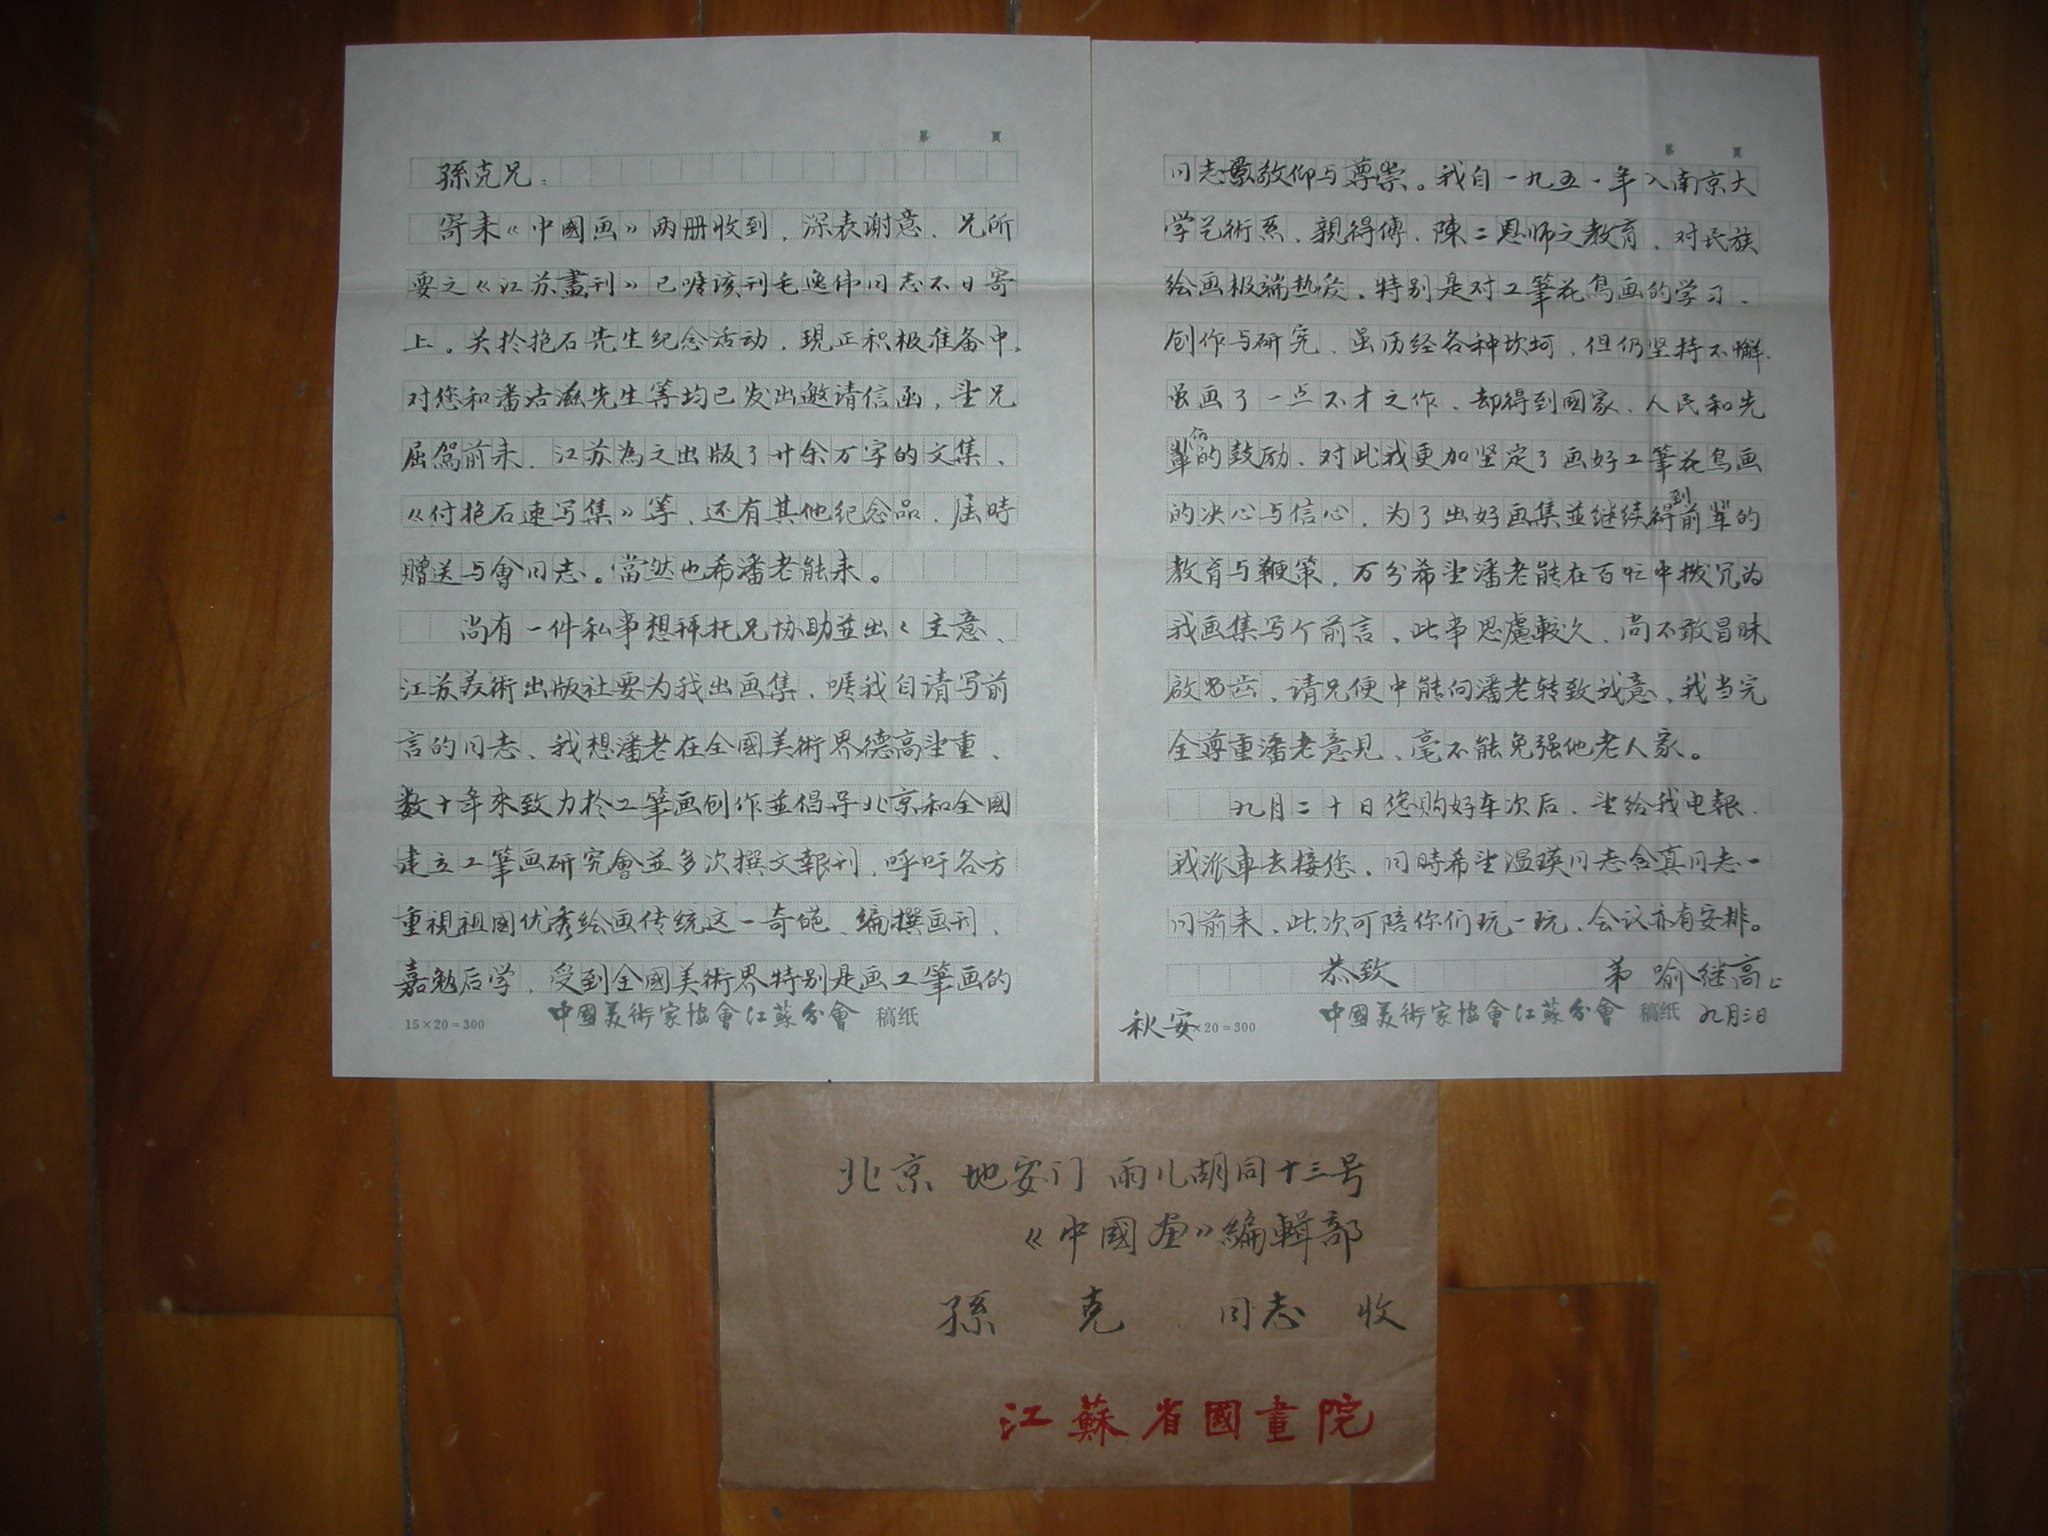 第 頁
孫克兄：
寄来《中國画》两册收到，深表谢意、兄所
要之《江苏畫刊》已嘱该刊毛逸伟同志不日寄
上。关於抱石先生纪念活动，現正积极准备中，
对您和潘洁滋先生等均已发出邀请信函，望兄
屈驾前来，江苏為之出版了廿余万字的文集、
《付抱石速写集》等，还有其他纪念品，届時
赠送与會同志。當然也希潘老能来。
尚有一件私事想拜托兄协助並出々主意、
江苏美術出版社要为我出画集，嘱我自请写前
言的同志、我想潘老在全國美術界德高望重、
数十年來致力於工筆画创作並倡导北京和全國
建立工筆画研究會並多次撰文報刊，呼吁各方
重視祖國优秀绘画传统这一奇葩、编撰画刊、
嘉勉后学，受到全國美術界特别是画工筆画的
15×20=300 中國美術家協會江蘇分會 稿纸
第 頁
同志敬仰与尊崇。我自一九五一年入南京大
学艺術系、親得傅、陳二恩师之教育，对民族
绘画极端热爱，特别是对工筆花鸟画的学习、
创作与研究，虽历经各种坎坷，但仍坚持不懈.
虽画了一点不才之作、却得到國家、人民和先
輩们的鼓励、对此我更加坚定了画好工筆花鸟画
的决心与信心，为了出好画集並继续得到前辈的
教育与鞭策，万分希望潘老能在百忙中拨冗为
我画集写个前言、此事思慮較久，尚不敢冒昧
啟齿，请兄便中能向潘老转致我意、我当完
全尊重潘老意见、毫不能免强他老人家。
九月二十日您购好车次后，望给我电報，
我派車去接您，同時希望温瑛同志含真同志一
同前来，此次可陪你们玩一玩、会议亦有安排。
恭致 弟 喻继高上
秋安 ×20=300 中國美術家協會江蘇分會 稿纸 九月三日
北京 地安门 雨儿胡同十三号
《中國画》编輯部
孫 克 同志 收
江蘇省國畫院